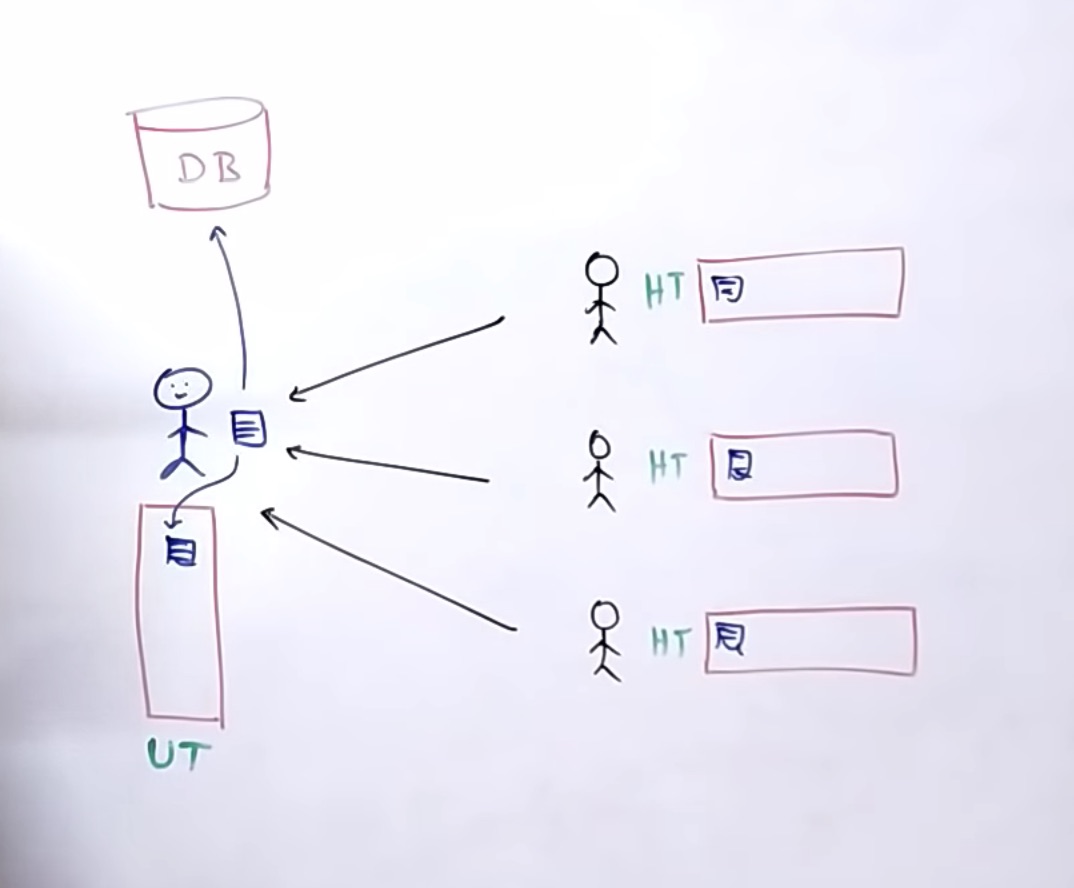 DB
HT
HT
HT
UT